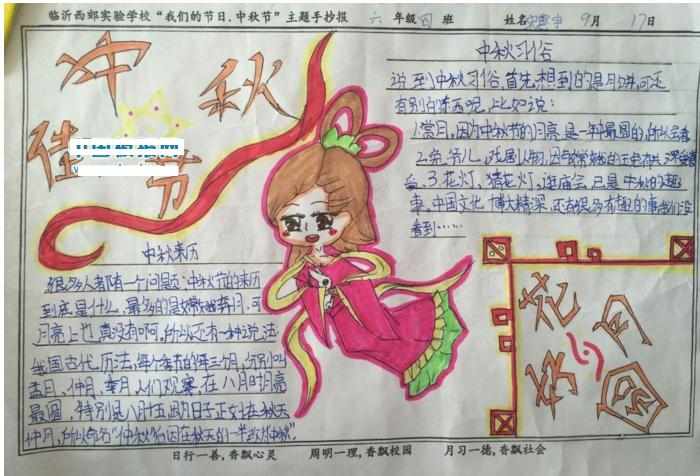 临沂西郊实验学校“我们的节日.中秋节”主题手抄报 六 年级四班 姓名 9月 17日
中秋
佳节
中秋习俗
说到中秋习俗,首先想到的是月饼,可还
有别的东西呢,比如说:
1.赏月,因为中秋节的月亮是一年最圆的,所以会赏
2.兔爷儿,戏剧人物,因
3.花灯,猜花灯,逛庙会,已是中秋的趣
事,中国文化博大精深,还有很多有趣的事我们没
看到……
中秋来历
很多人都有一个问题:中秋节的来历
到底是什么,最多的是嫦娥奔月,可
月亮上也真没有啊,所以还有一种说法
我国古代历法,每个季节的三个月,分别叫
孟月、仲月、季月,人们观察,在八月时月亮
最圆,特别是八月十五,四月日子正好在秋天
仲月,所以命名“仲秋”
花好月圆
日行一善,香飘心灵 周明一理,香飘校园 月习一德,香飘社会